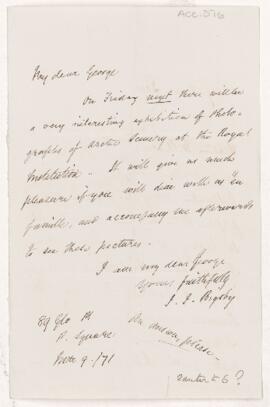 ACC.576
My dear George
On Friday next there will be
a very interesting exhibition of Photo-
graphs of Arctic Scenery at the Royal
Institution. It will give us much
pleasure if you will dine with us "en
famille, and accompany me afterwards
to see these pictures.
I am my dear George
Yours faithfully
J. J. Bigsby
89 Glo Pl
P. Square
9./71
An answer, please.
6?